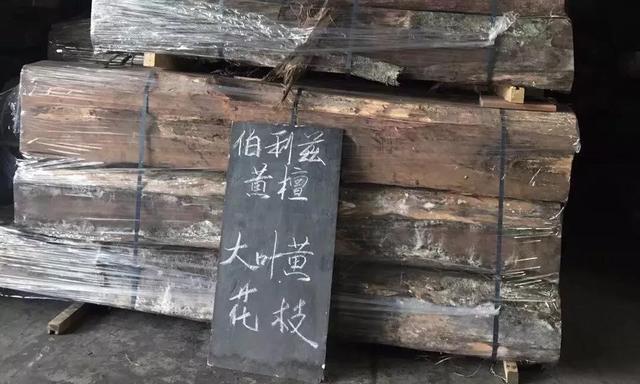 伯利兹
黄檀
大叶黄
花枝